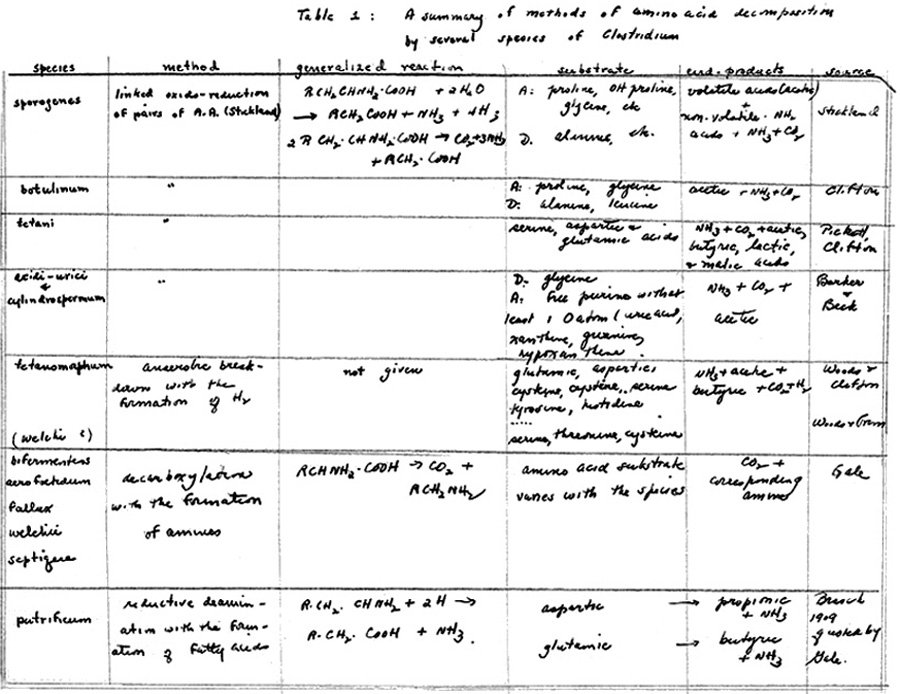 Table 1 : A summary of methods of amino acid decomposition
by several species of Clostridium
species method generalized reaction substrate end-products source
sporogenes
linked oxido-reduction
of pairs of A.A. (Stickland)
RCH₂CHNH₂·COOH + 2H₂O
→ RCH₂COOH + NH₃ + 4H
2 R CH₂·CHNH₂·COOH → CO₂+3NH₃
+ RCH₂·COOH
A: proline, OH proline,
glycine, etc
D. alanine, etc.
volatile acids (acetic)
+
non-volatile-NH₂
acids + NH₃ + CO₂
Stickland
botulinum
"
A: proline, glycine
D: alanine, leucine
acetic + NH₃ + CO₂
Clifton
tetani
"
serine, aspartic &
glutamic acids
NH₃ + CO₂ + acetic,
butyric, lactic,
& malic acids
Pickett,
Clifton
acidi-urici
&
cylindrosporum
"
D- glycine
A: free purine with at
least 1 O atom (uric acid,
xanthine, guanine,
hypoxanthine.
NH₃ + CO₂ +
acetic
Barker
&
Beck
tetanomorphum
(welchii ?)
anaerobic break-
down with the
formation of H₂
not given
glutamic, aspartic,
cysteine, cystine, serine
tyrosine, histidine
.....
serine, threonine, cysteine
NH₃ + acetic +
butyric + CO₂ + H₂
Woods &
Clifton
Woods & Trim
bifermentens
aerofoetidum
fallax
welchii
septique
decarboxylation
with the formation
of amines
RCHNH₂·COOH → CO₂ +
RCH₂NH₂
amino acid substrate
varies with the species
CO₂ +
corresponding
amine
Gale
putrificum
reductive deamin-
ation with the form-
ation of fatty acids
R·CH₂·CHNH₂ + 2H →
R-CH₂·COOH + NH₃.
aspartic → propionic
+ NH₃
glutamic → butyric
+ NH₃
1909
quoted by
Gale.